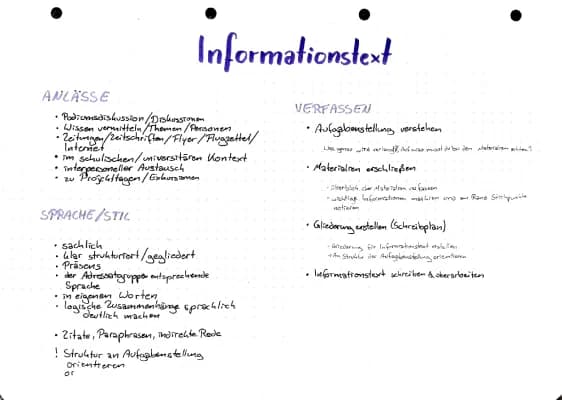 Informationstext
ANLÄSSE
• Podiumsdiskussion/Diskussionen
• Wissen vermitteln/Themen/Personen
• Zeitungen/Zeitschriften/Flyer/Flugzettel/
Internet
• im schulischen/universitären Kontext
• interpersoneller Austausch
• zu Projekttagen/Exkursionen
SPRACHE/STIL
• sachlich
• klar strukturiert/gegliedert
• Präsens
• der Adressatgruppe entsprechende
Sprache
• in eigenen Worten
• logische Zusammenhänge sprachlich
deutlich machen
• Zitate, Paraphrasen, indirekte Rede
! Struktur an Aufgabenstellung
orientieren
or
VERFASSEN
• Aufgabenstellung verstehen
Was genau wird verlangt? Auf was muss ich bei den Materialien achten?
• Materialien erschließen
- Überblick über Materialien verfassen
- wichtige Informationen markieren und am Rand Stichpunkte
notieren
• Gliederung erstellen (Schreibplan)
- Gliederung für Informationstext erstellen
→ An Struktur der Aufgabenstellung orientieren
• Informationstext schreiben & überarbeiten